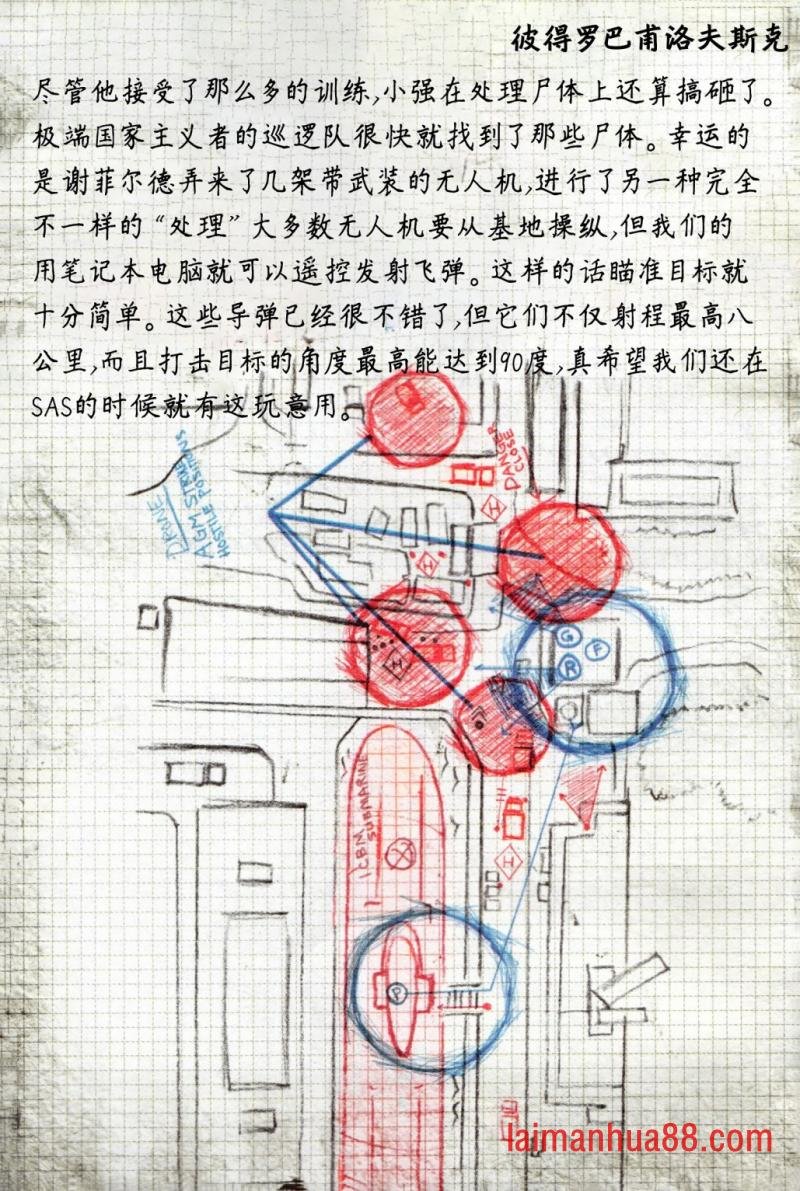 彼得罗巴甫洛夫斯克
尽管他接受了那么多的训练,小强在处理尸体上还算搞砸了。
极端国家主义者的巡逻队很快就找到了那些尸体。幸运的
是谢菲尔德弄来了几架带武装的无人机,进行了另一种完全
不一样的“处理”大多数无人机要从基地操纵,但我们的
用笔记本电脑就可以遥控发射飞弹。这样的话瞄准目标就
十分简单。这些导弹已经很不错了,但它们不仅射程最高八
公里,而且打击目标的角度最高能达到90度,真希望我们还在
SAS的时候就有这玩意用。
DANGER
CLOSE
DRONE
AGM STRIKE
HOSTILE POSITIONS
H
H
H
G
F
R
ICBM
SUBMARINE
H
P
laimanhua88.com